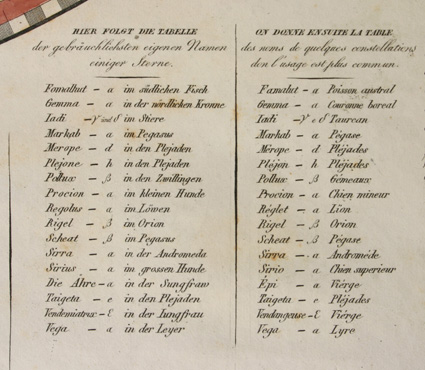 HIER FOLGT DIE TABELLE
der gebräuchlichsten eigenen Namen
einiger Sterne.
Fomalhut – a im südlichen Fisch
Gemma – a in der nördlichen Kronne
Iadi – γ und δ im Stiere
Markab – a im Pegasus
Merope – d in den Plejaden
Plejone – h in den Plejaden
Pollux – β in den Zwillingen
Procion – a im kleinen Hunde
Regolus – a im Löwen
Rigel – β im Orion
Scheat – β im Pegasus
Sirra – a in der Andromeda
Sirius – a im grossen Hunde
Die Ähre – a in der Jungfrau
Taigeta – e in den Plejaden
Vendemiatrix – ε in der Jungfrau
Vega – a in der Leyer
ON DONNE ENSUITE LA TABLE
des noms de quelques constellations
don l'usage est plus commun.
Famalut – a Poisson austral
Gemma – a Couronne boreal
Iadi – γ e δ Taurean
Markab – a Pégase
Mérope – d Pléjades
Pléjon – h Pléjades
Pollux – β Gémeaux
Procion – a Chien mineur
Réglet – a Lion
Rigel – β Orion
Scheat – β Pégase
Sirra – a Andromède
Sirio – a Chien superieur
Épi – a Viérge
Taigeta – e Pléjades
Vendangeuse – ε Viérge
Vega – a Lyre